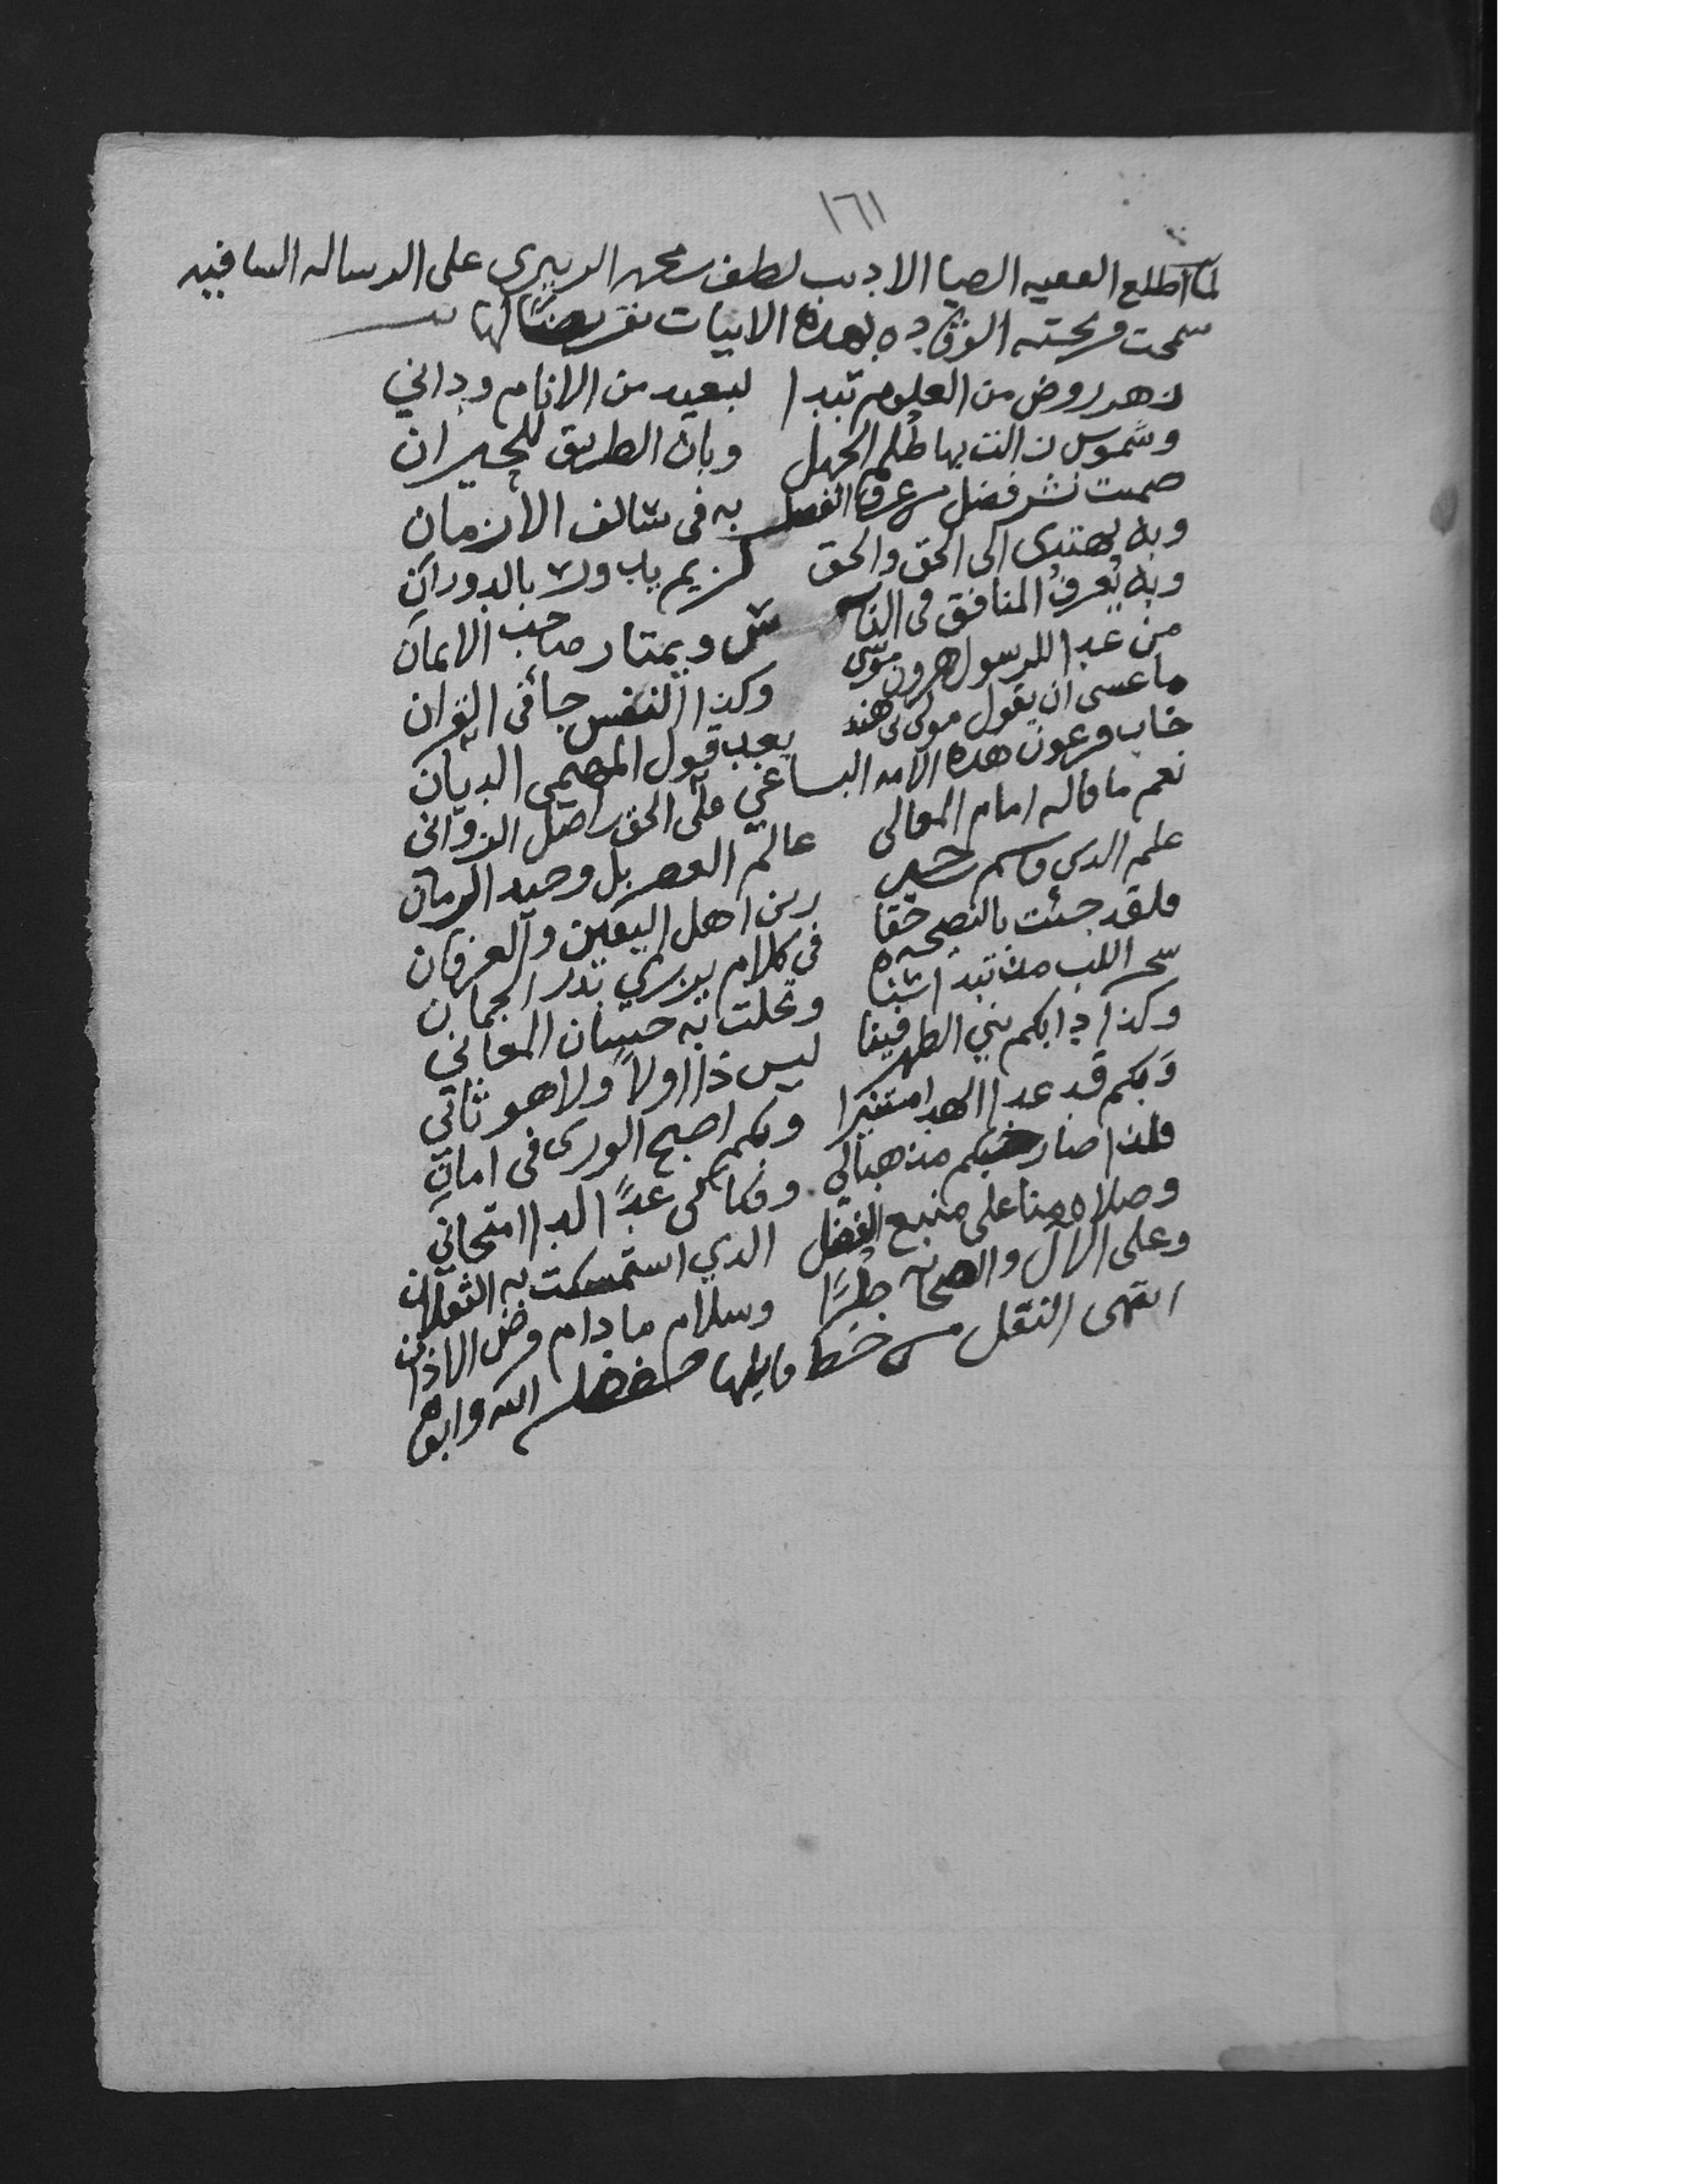 ١٦١
لما اطلع الفقيه الضيا الاديب لطف بن محمد الزبيري على الرساله الشافيه
سمحت قريحته الوقاده بهذه الابيات تقريضًا لها
زهر روض من العلوم تبدا لبعيد من الانام وداني
وشموس زالت بها ظُلم الجهل وبان الطريق للحيران
ضمنت نشر فضل من عرف الفضل به في سالف الازمان
وبه يهتدى الى الحق والحق لزيم باب ولا بالدوران
وبه يُعرف المنافق في النا س ويمتاز صاحب الايمان
من غدا للرسول هرون موسى وكذا النفس جا في القران
ما عسى ان يقول مولى هند بعد قول المهيمن الديان
خاب فرعون هذه الامه الباغي على الحق اصل الزواني
نعم ما قاله امام المعالي عالم العصر بل وحيد الزمان
علم الدين قاسم حسين زين اهل اليقين والعرفان
فلقد جئت بالنصيحه حقا في كلام يزري بدر الجمان
سحر اللب مذ تبدا سناه وتحلت به حسان المعاني
وكذا دابكم بني الطهر فينا ليس ذا اولاً ولا هو ثاني
وَبكم قد غدا الهدا مستنيرا وبكم اصبح الورى في امان
فلذا صار حبكم مذهبا لي وفكاكي غدًا لدا امتحاني
وصلاه منا على منبع الفضل الذي استمسكت به الثقلان
وعلى الال والصحابه طرًا وسلام ما دام فرض الاذان
انتهى النقل من خط قايلها حفظه الله وابقاه